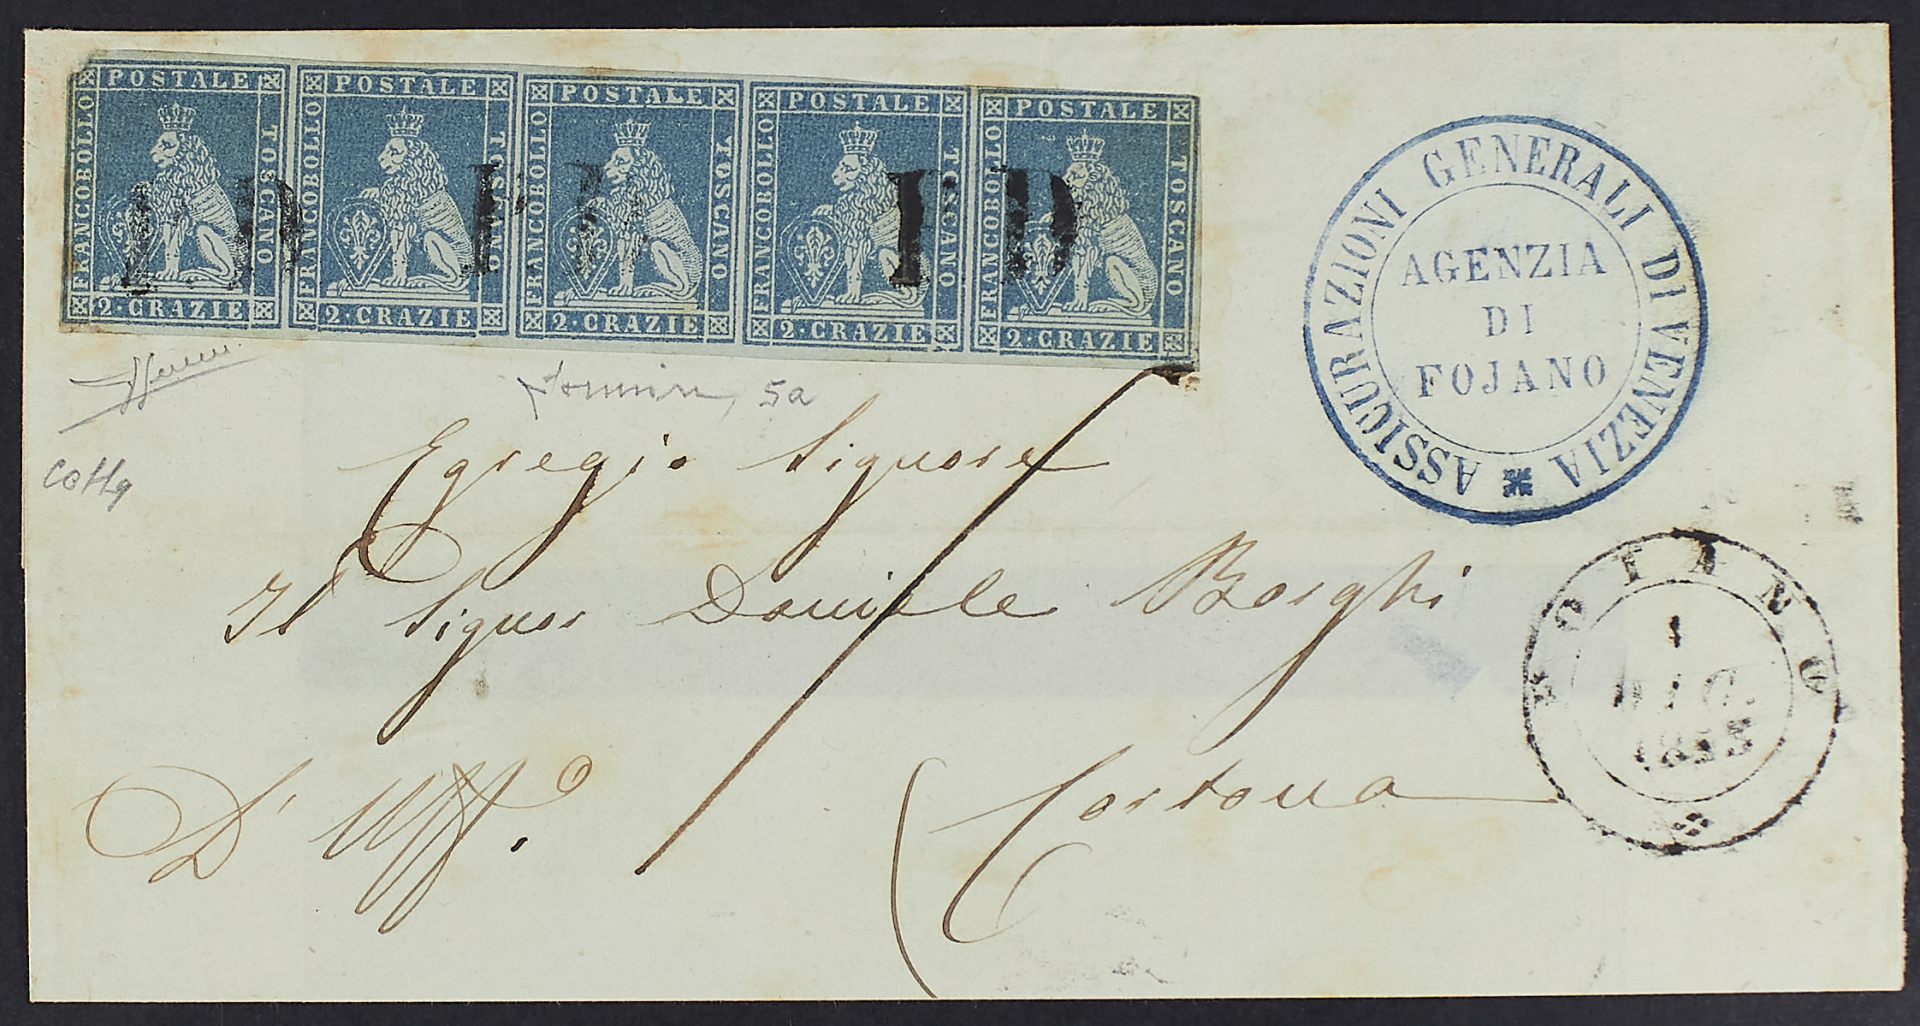 POSTALE POSTALE POSTALE POSTALE POSTALE
FRANCOBOLLO TOSCANO FRANCOBOLLO TOSCANO FRANCOBOLLO TOSCANO FRANCOBOLLO TOSCANO FRANCOBOLLO TOSCANO
PD PD PD
2·CRAZIE 2·CRAZIE 2·CRAZIE 2·CRAZIE 2·CRAZIE
ASSICURAZIONI GENERALI DI VENEZIA
AGENZIA
DI
FOJANO
5a
Egregio Signore
Il Signor Daniele Borghi
D' Uff.o
Cortona
FOIANO
1
DIC.
1855